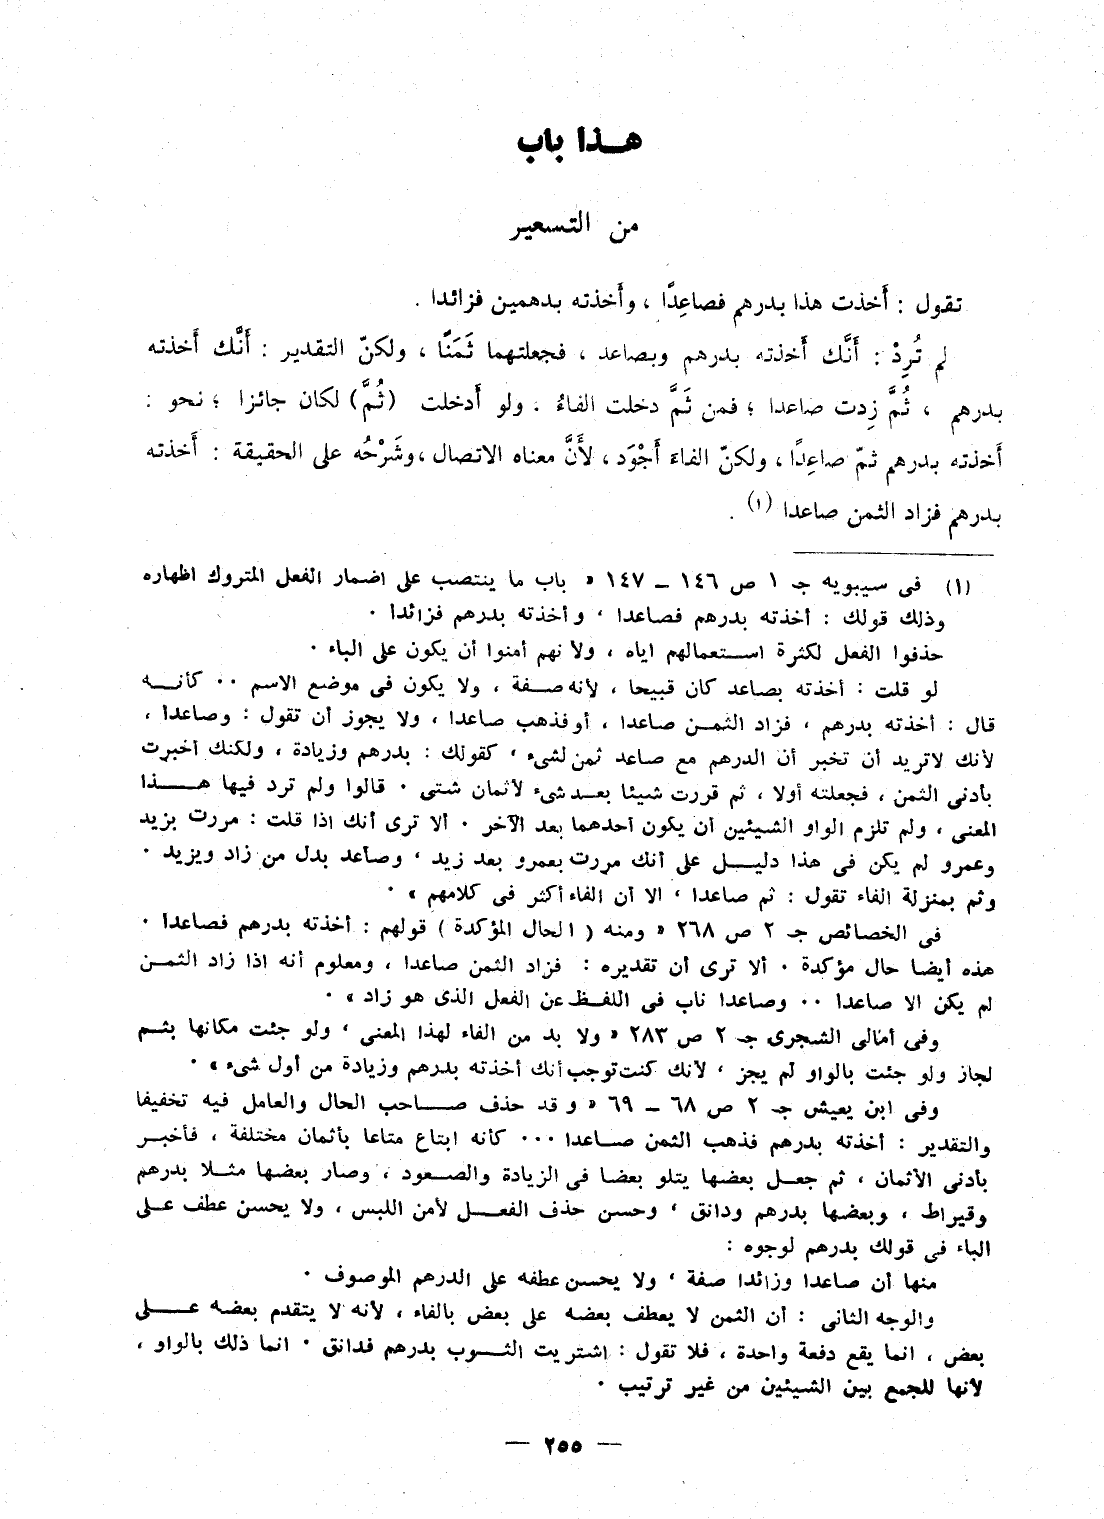 هــذا باب
من التسعير
تقول : أَخذت هذا بدرهم فصاعِدًا ، وأَخذته بدهمين فزائدا .
لم تُرِدْ : أَنَّك أَخذته بدرهم وبصاعد ، فجعلتهما ثَمَنًا ، ولكنّ التقدير : أَنَّك أَخذته
بدرهم ، ثُمَّ زِدت صاعدا ؛ فمن ثَمَّ دخلت الفاءُ . ولو أَدخلت (ثُمَّ) لكان جائزا ؛ نحو :
أَخذته بدرهم ثمّ صاعِدًا ، ولكنّ الفاءَ أَجْوَد ، لأَنَّ معناه الاتصال ، وشَرْحُه على الحقيقة : أَخذته
بدرهم فزاد الثمن صاعدا (١) .
(١) فى سيبويه جـ ١ ص ١٤٦ ــ ١٤٧ « باب ما ينتصب على اضمار الفعل المتروك اظهاره
وذلك قولك : أخذته بدرهم فصاعدا ، وأخذته بدرهم فزائدا ٠
حذفوا الفعل لكثرة استعمالهم اياه ، ولانهم أمنوا أن يكون على الباء ٠
لو قلت : أخذته بصاعد كان قبيحا ، لأنه صفة ، ولا يكون فى موضع الاسم ٠٠ كأنه
قال : أخذته بدرهم ، فزاد الثمن صاعدا ، أو فذهب صاعدا ، ولا يجوز أن تقول : وصاعدا ،
لأنك لاتريد أن تخبر أن الدرهم مع صاعد ثمن لشىء ، كقولك : بدرهم وزيادة ، ولكنك أخبرت
بأدنى الثمن ، فجعلته أولا ، ثم قررت شيئا بعد شىء لأثمان شتى ٠ قالوا ولم ترد فيها هذا
المعنى ، ولم تلزم الواو الشيئين أن يكون أحدهما بعد الآخر ٠ ألا ترى أنك اذا قلت : مررت بزيد
وعمرو لم يكن فى هذا دليل على أنك مررت بعمرو بعد زيد ، وصاعد بدل من زاد ويزيد ٠
وثم بمنزلة الفاء تقول : ثم صاعدا ، الا أن الفاء أكثر فى كلامهم » ٠
فى الخصائص جـ ٢ ص ٢٦٨ « ومنه ( الحال المؤكدة ) قولهم : أخذته بدرهم فصاعدا ٠
هذه أيضا حال مؤكدة ٠ ألا ترى أن تقديره : فزاد الثمن صاعدا ، ومعلوم أنه اذا زاد الثمن
لم يكن الا صاعدا ٠٠ وصاعدا ناب فى اللفظ عن الفعل الذى هو زاد » ٠
وفى أمالى الشجرى جـ ٢ ص ٢٨٣ « ولا بد من الفاء لهذا المعنى ، ولو جئت مكانها بثم
لجاز ولو جئت بالواو لم يجز ، لأنك كنت توجب أنك أخذته بدرهم وزيادة من أول شىء » ٠
وفى ابن يعيش جـ ٢ ص ٦٨ ــ ٦٩ « وقد حذف صاحب الحال والعامل فيه تخفيفا
والتقدير : أخذته بدرهم فذهب الثمن صاعدا ٠٠٠ كأنه ابتاع متاعا بأثمان مختلفة ، فأخبر
بأدنى الأثمان ، ثم جعل بعضها يتلو بعضا فى الزيادة والصعود ، وصار بعضها مثلا بدرهم
وقيراط ، وبعضها بدرهم ودانق ، وحسن حذف الفعل لأمن اللبس ، ولا يحسن عطف على
الباء فى قولك بدرهم لوجوه :
منها أن صاعدا وزائدا صفة ، ولا يحسن عطفه على الدرهم الموصوف ٠
والوجه الثانى : أن الثمن لا يعطف بعضه على بعض بالفاء ، لأنه لا يتقدم بعضه على
بعض ، انما يقع دفعة واحدة ، فلا تقول : اشتريت الثوب بدرهم فدانق ٠ انما ذلك بالواو ،
لأنها للجمع بين الشيئين من غير ترتيب ٠
— ٢٥٥ —